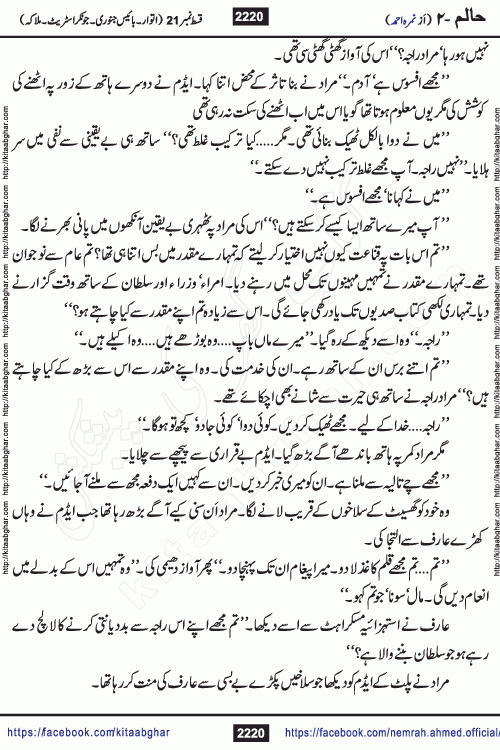 حالم ۔۲ (از نمرہ احمد)
2220
قسط نمبر 21 (اتوار۔ بائیس جنوری۔ جونکر اسٹریٹ۔ ملاکہ)
نہیں ہو رہا‘ مراد راجہ؟“ اس کی آواز گھٹی گھٹی سی تھی۔
”مجھے افسوس ہے‘ آدم۔“ مراد نے بنا تاثر کے محض اتنا کہا۔ ایڈم نے دوسرے ہاتھ کے زور پہ اٹھنے کی
کوشش کی مگر یوں معلوم ہوتا تھا گویا اس میں اب اٹھنے کی سکت نہ رہی تھی
”میں نے دوا بالکل ٹھیک بنائی تھی۔ مگر.....کیا ترکیب غلط تھی؟“ ساتھ ہی بے یقینی سے نفی میں سر
ہلایا۔ ”نہیں راجہ۔ آپ مجھے غلط ترکیب نہیں دے سکتے۔“
”میں نے کہا نا‘ مجھے افسوس ہے۔“
”آپ میرے ساتھ ایسا کیسے کر سکتے ہیں؟“ اس کی مراد پہ ٹھہری بے یقین آنکھوں میں پانی بھرنے لگا۔
”تم اس بات پہ قناعت کیوں نہیں اختیار کر لیتے کہ تمہارے مقدر میں بس اتنا ہی تھا؟ تم عام سے نوجوان
تھے۔ تمہارے مقدر نے تمہیں مہینوں تک محل میں رہنے دیا۔ امراء‘ وزراء اور سلطان کے ساتھ وقت گزارنے
دیا۔ تمہاری لکھی کتاب صدیوں تک یاد رکھی جائے گی۔ اس سے زیادہ تم اپنے مقدر سے کیا چاہتے ہو؟“
”راجہ۔“ وہ اسے دیکھ کے رہ گیا۔ ”میرے ماں باپ....وہ بوڑھے ہیں....وہ اکیلے ہیں۔“
”تم اتنے برس ان کے ساتھ رہے۔ ان کی خدمت کی۔ وہ اپنے مقدر سے اس سے بڑھ کے کیا چاہتے
ہیں؟“ مراد راجہ نے ساتھ ہی حیرت سے شانے بھی اچکائے تھے۔
”راجہ....خدا کے لیے۔ مجھے ٹھیک کر دیں۔ کوئی دوا‘ کوئی جادو‘ کچھ تو ہوگا۔“
مگر مراد کمر پہ ہاتھ باندھے آگے بڑھ گیا۔ ایڈم بے قراری سے پیچھے سے چلایا۔
”مجھے چے تالیہ سے ملنا ہے۔ ان کو میری خبر کر دیں۔ ان سے کہیں ایک دفعہ مجھ سے ملنے آجائیں۔“
وہ خود کو گھسیٹ کے سلاخوں کے قریب لانے لگا۔ مراد ان سنی کیے آگے بڑھ رہا تھا جب ایڈم نے وہاں
کھڑے عارف سے التجا کی۔
”تم....تم مجھے قلم کاغذ لا دو۔ میرا پیغام ان تک پہنچا دو۔“ پھر آواز دھیمی کی۔ ”وہ تمہیں اس کے بدلے میں
انعام دیں گی۔ مال‘ سونا‘ جو تم کہو۔“
عارف نے استہزائیہ مسکراہٹ سے اسے دیکھا۔ ”تم مجھے اپنے اس راجہ سے بددیانتی کرنے کا لالچ دے
رہے ہو جو سلطان بننے والا ہے؟“
مراد نے پلٹ کے ایڈم کو دیکھا جو سلاخیں پکڑے بے بسی سے عارف کی منت کر رہا تھا۔
https://facebook.com/kitaabghar
2220
https://facebook.com/nemrah.ahmed.official/
http://kitaabghar.com